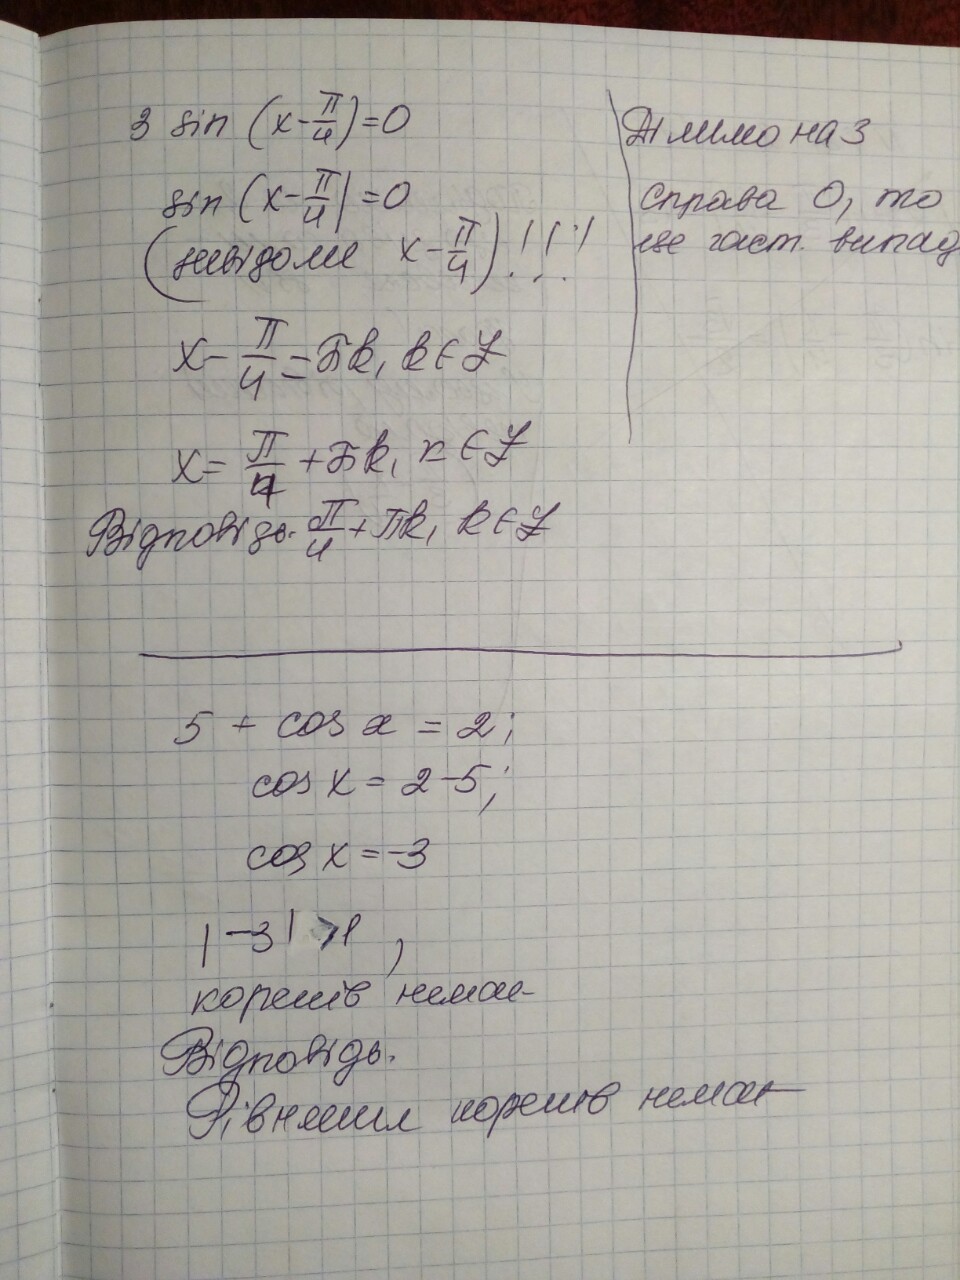 3 sin (x-π/4)=0
sin (x-π/4|=0
(невідоме x-π/4)!!!
x-π/4=πk, k∈Z
x=π/4+πk, k∈Z
Відповідь. π/4+πk, k∈Z
Ділимо на 3
справа 0, то
це част. випад
5 + cos x = 2;
cos x = 2-5;
cos x = -3
|-3| >1,
коренів немає
Відповідь.
Рівняння коренів немає